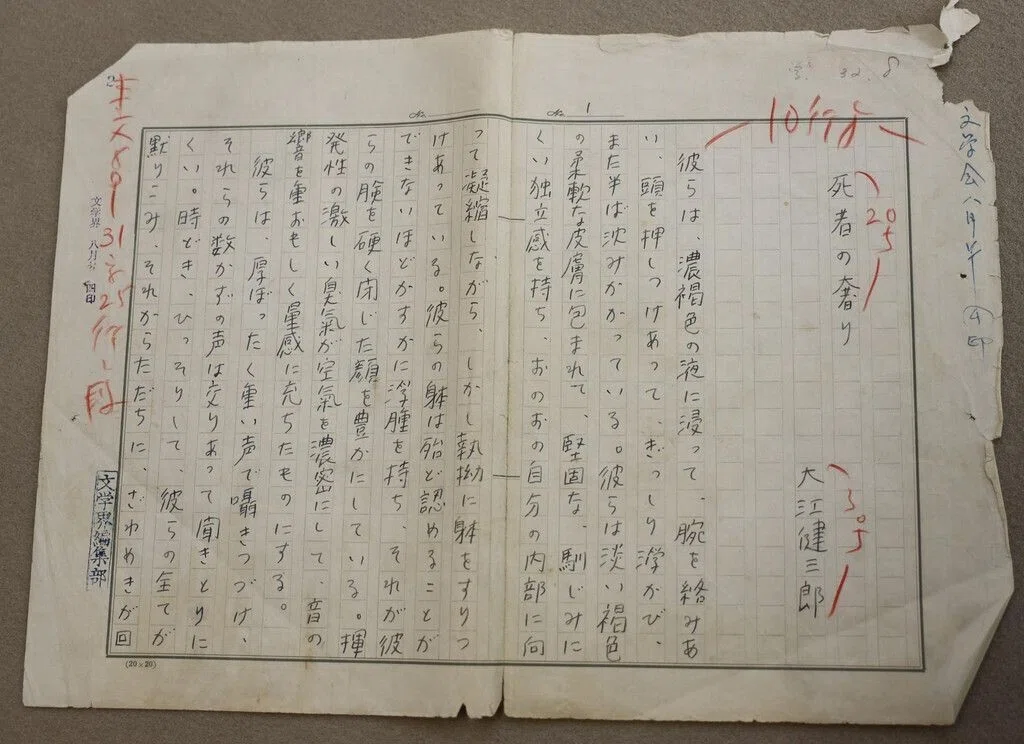 32.8
文学会八月号 四印
10行ドリ
No. 1
No.
死者の奢り
20
大江健三郎
彼らは、濃褐色の液に浸って、腕を絡みあ
い、頭を押しつけあって、ぎっしり浮かび、
また半ば沈みかかっている。彼らは淡い褐色
の柔軟な皮膚に包まれて、堅固な、馴じみに
くい独立感を持ち、おのおの自分の内部に向
って凝縮しながら、しかし執拗に躰をすりつ
けあっている。彼らの躰は殆ど認めることが
できないほどかすかに浮腫を持ち、それが彼
らの瞼を硬く閉じた顔を豊かにしている。揮
発性の激しい臭氣が空氣を濃密にして、音の
響を重おもしく量感に充ちたものにする。
彼らは、厚ぼったく重い声で囁きつづけ、
それらの数かずの声は交りあって聞きとりに
くい。時どき、ひっそりして、彼らの全てが
黙りこみ、それからただちに、ざわめきが回
(20×20)
文学界 八月号 四印
文学界編集部
31字25行